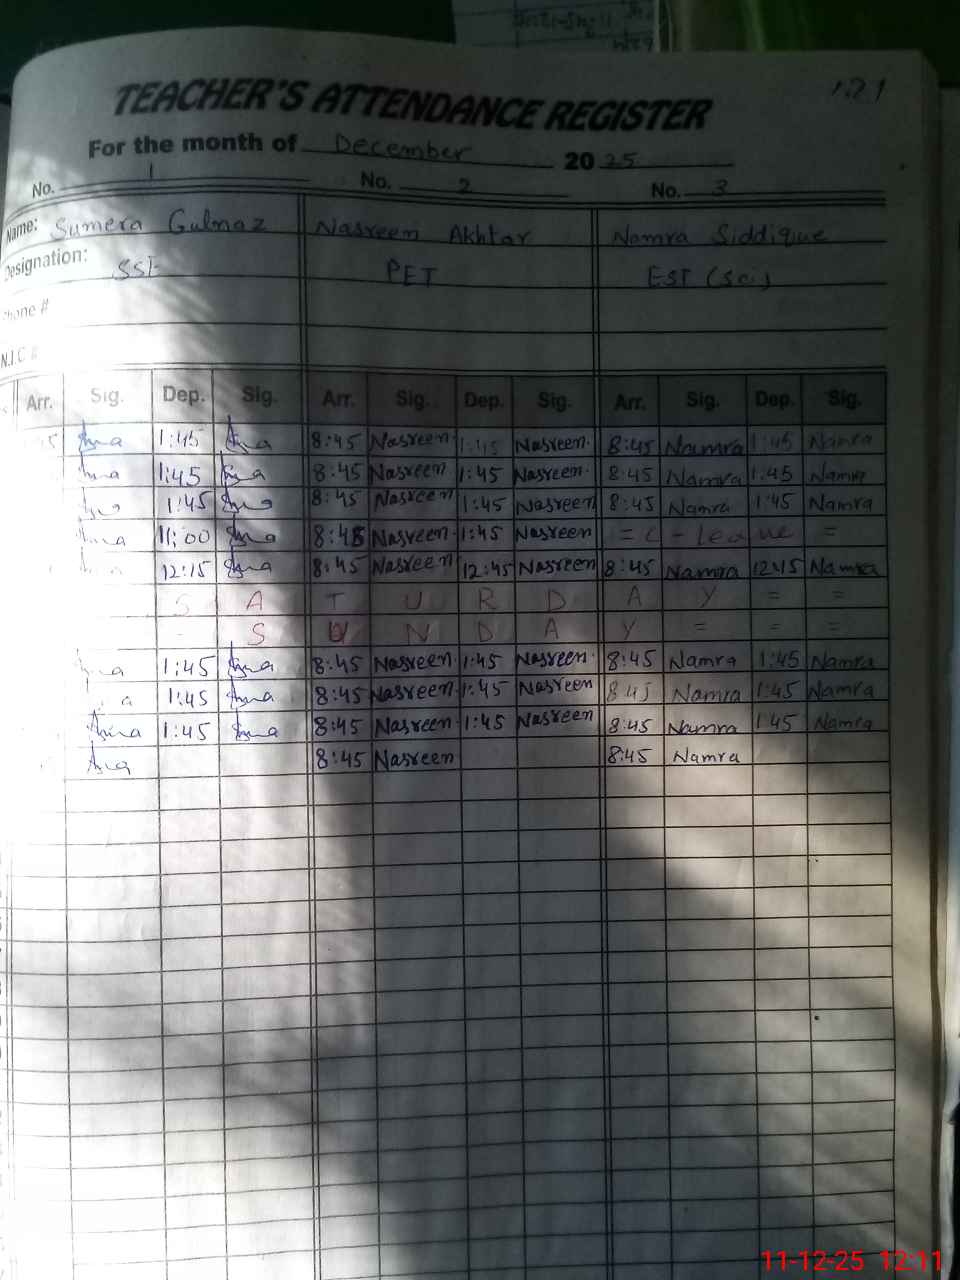 121
TEACHER'S ATTENDANCE REGISTER
For the month of December 2025
No. 1 No. 2 No. 3
Name: Sumera Gulnaz Nasreen Akhtar Namra Siddique
Designation: SSE PET EST (Sci)
Phone #
N.I.C #
Arr. Sig. Dep. Sig. Arr. Sig. Dep. Sig. Arr. Sig. Dep. Sig.
1:45 8:45 Nasreen 1:45 Nasreen. 8:45 Naumra 1:45 Namra
1:45 8:45 Nasreen 1:45 Nasreen. 8:45 Namra 1:45 Namra
1:45 8:45 Nasreen 1:45 Nasreen 8:45 Namra 1:45 Namra
11:00 8:45 Nasreen 1:45 Nasreen = C - Leave =
12:15 8:45 Nasreen 12:45 Nasreen 8:45 Namra 12:45 Namra
S A T U R D A Y = =
S U N D A Y = = =
1:45 8:45 Nasreen. 1:45 Nasreen. 8:45 Namra 1:45 Namra
1:45 8:45 Nasreen. 1:45 Nasreen 8:45 Namra 1:45 Namra
1:45 8:45 Nasreen 1:45 Nasreen 8:45 Namra 1:45 Namra
8:45 Nasreen 8:45 Namra
11-12-25 12:11